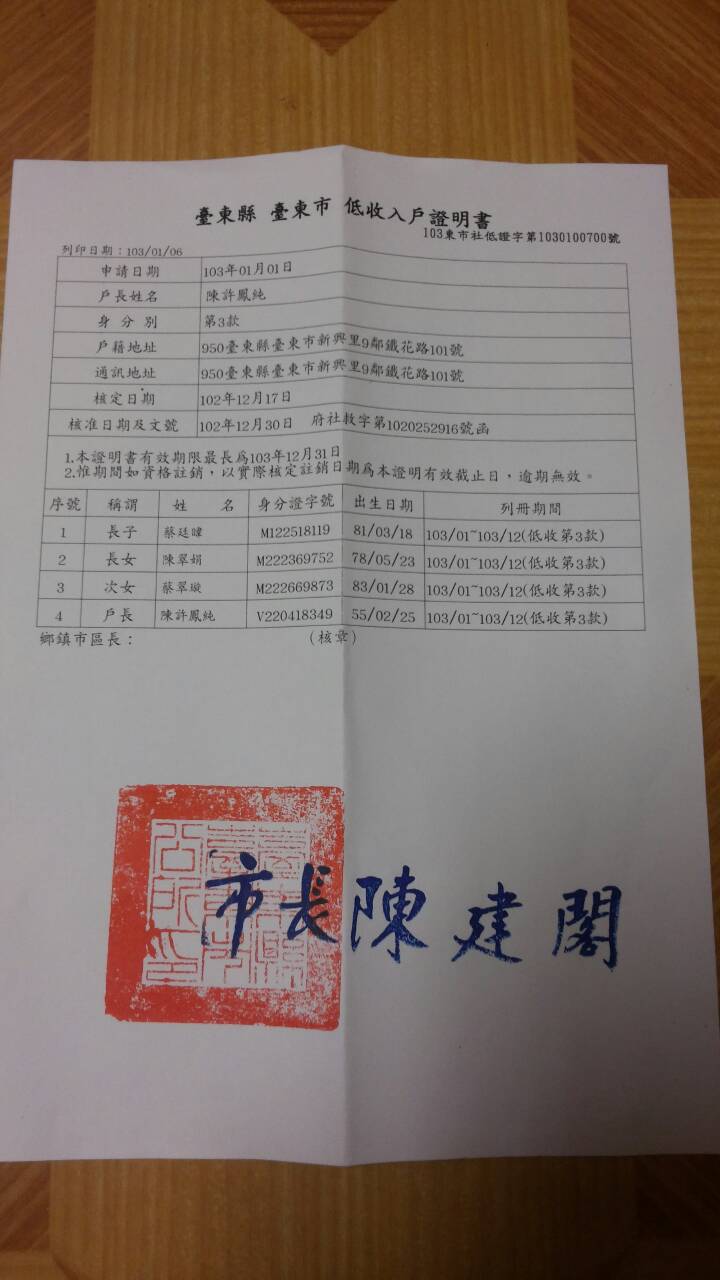 臺東縣 臺東市 低收入戶證明書
103東市社低證字第1030100700號
列印日期：103/01/06
申請日期 103年01月01日
戶長姓名 陳許鳳純
身分別 第3款
戶籍地址 950臺東縣臺東市新興里9鄰鐵花路101號
通訊地址 950臺東縣臺東市新興里9鄰鐵花路101號
核定日期 102年12月17日
核准日期及文號 102年12月30日 府社救字第1020252916號函
1.本證明書有效期限最長為103年12月31日
2.惟期間如資格註銷，以實際核定註銷日期為本證明有效截止日，逾期無效。
序號 稱謂 姓名 身分證字號 出生日期 列冊期間
1 長子 蔡廷暐 M122518119 81/03/18 103/01~103/12(低收第3款)
2 長女 陳翠娟 M222369752 78/05/23 103/01~103/12(低收第3款)
3 次女 蔡翠璇 M222669873 83/01/28 103/01~103/12(低收第3款)
4 戶長 陳許鳳純 V220418349 55/02/25 103/01~103/12(低收第3款)
鄉鎮市區長： (核章)
市長陳建閣